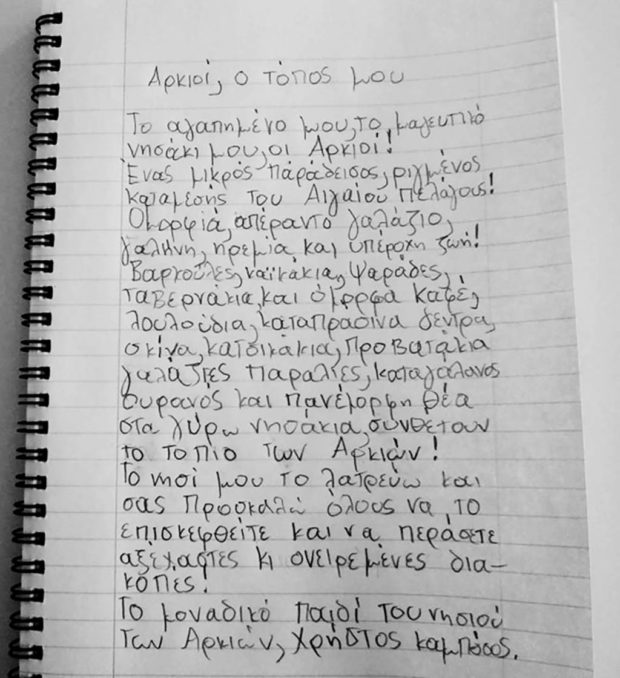 Αρκιοί, ο τόπος μου
Το αγαπημένο μου, το μαγευτικό
νησάκι μου, οι Αρκιοί!
Ένας μικρός παράδεισος, ριγμένος
καταμεσής του Αιγαίου Πελάγους!
Ομορφιά, απέραντο γαλάζιο,
γαλήνη, ηρεμία και υπέροχη ζωή!
Βαρκούλες, καϊκάκια, ψαράδες,
ταβερνάκια και όμορφα καφέ,
λουλούδια, καταπράσινα δέντρα,
σκίνα, κατσικάκια, προβατάκια
γαλάζιες παραλίες, καταγάλανος
ουρανός και πανέμορφη θέα
στα γύρω νησάκια, συνθέτουν
το τοπίο των Αρκιών!
Το νησί μου το λατρεύω και
σας προσκαλώ όλους να το
επισκεφθείτε και να περάσετε
αξέχαστες κι ονειρεμένες δια-
κόπες!
Το μοναδικό παιδί του νησιού
των Αρκιών, Χρήστος Καμπόσος.